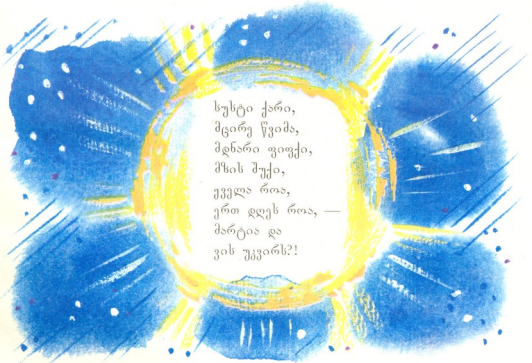 სუსტი ქარი,
მცირე წვიმა,
მდნარი ფიფქი,
მზის შუქი,
ყველა როა,
ერთ დღეს როა, —
მარტია და
ვის უკვირს?!